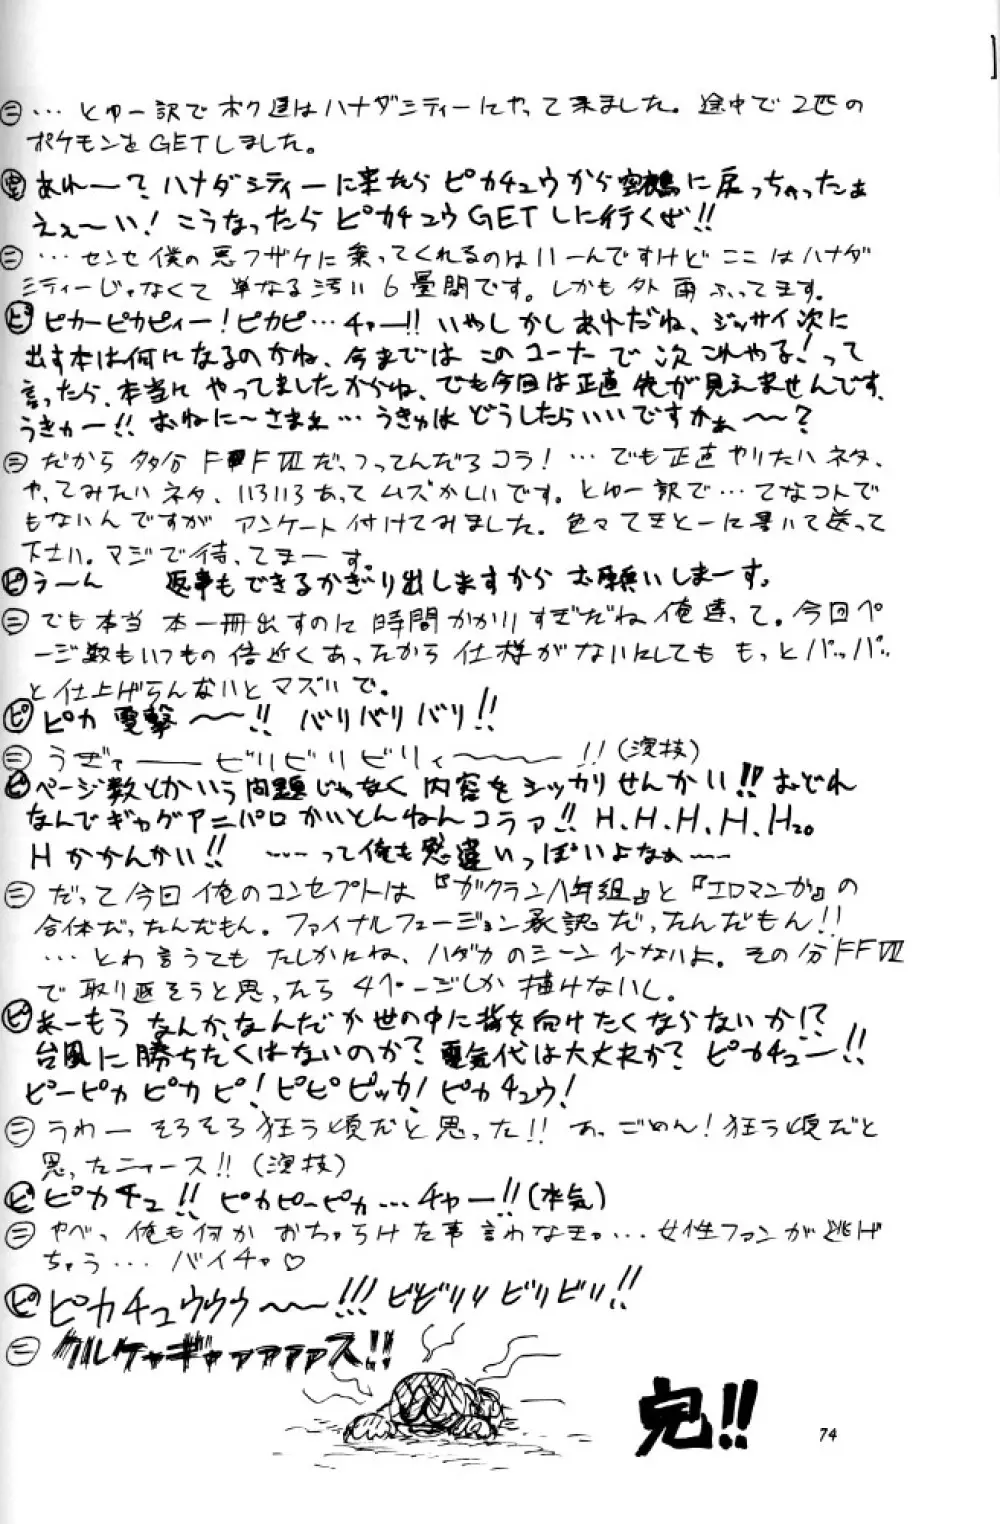 ㊁…とゆー訳でボク達はハナダシティーにやって来ました。途中で2匹の
ポケモンをGETしました。
㊢あれ〜?ハナダシティーに来たらピカチュウから空鶴に戻っちゃったぁ
えぇ〜い!こうなったらピカチュウGETしに行くぜ!!
㊁…センセ僕の悪フザケに乗ってくれるのはいーんですけどここはハナダ
シティーじゃなくて単なる汚い6畳間です。しかも外雨ふってます。
ピ ピカーピカピィー!ピカピ…チャー!!いやしかしあれだね、ジッサイ次に
出す本は何になるのかね、今まではこのコーナーで次これやる!って
言ったら、本当にやってましたからね、でも今回は正直先が見えませんです、
うきゅー!!おねに〜さまぇ…うきゅはどうしたらいいですかぁ〜〜?
㊁だから多分FFⅦだっつってんだろコラ!…でも正直やりたいネタ、
やってみたいネタ、いろいろあってムズかしいです。とゆー訳で…てなコトで
もないんですがアンケート付けてみました。色々てきとーに書いて送って
下さい。マジで待ってまーす。
ピ う〜ん 返事もできるかぎり出しますからお願いしまーす。
㊁でも本当本一冊出すのに時間かかりすぎだね俺達って。今回ペ
ージ数もいつもの倍近くあったから仕様がないにしてももっとパッパッ
と仕上げらんないとマズいで。
ピ ピカ電撃〜〜!!バリバリバリ!!
㊁うぎゃーービリビリビリィ〜〜〜!!(演技)
ピ ページ数とかいう問題じゃなく内容をシッカリせんかい!!おどれ
なんでギャグアニパロかいとんねんコラァ!!H.H.H.H.H20
Hかかんかい!!……って俺も勘違いっぽいよなぁ〜〜
㊁だって今回俺のコンセプトは『ガクラン八年組』と『エロマンガ』の
合体だったんだもん。ファイナルフュージョン承認だったんだもん!!
…とわ言うてもたしかにね、ハダカのシーン少ないよ。その分FFⅦ
で取り返そうと思ったら4ページしか描けないし。
ピ あーもうなんか、なんだか世の中に背を向けたくならないか!?
台風に勝ちたくはないのか?電気代は大丈夫か?ピカチュー!!
ピーピカピカピ!ピピピッカ!ピカチュウ!
㊁うわーそろそろ狂う頃だと思った!!あ、ごめん!狂う頃だと
思ったニャース!!(演技)
ピ ピカチュ!!ピカピーピカ…チャー!!(本気)
㊁やべっ俺も何かおちゃらけた事言わなきゃ…女性ファンが逃げ
ちゃう…バイチャ♡
ピ ピカチュウウウ〜〜!!!ビビリリビリビリ!!
㊁グルケャギャァァァァァス!!
完!!
74